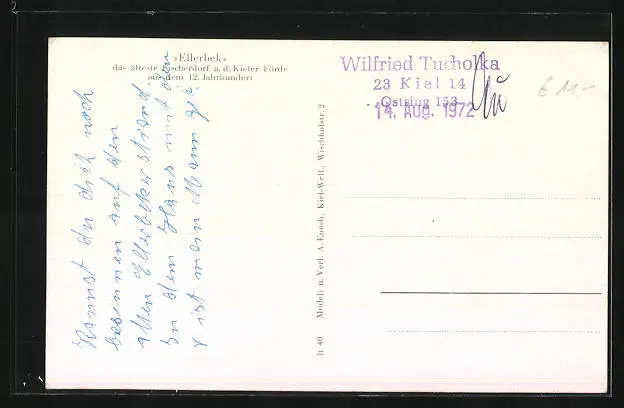 »Ellerbek«
das älteste Fischerdorf a. d. Kieler Förde
aus dem 12. Jahrhundert
Kannst du dich noch
besinnen auf den
alten Ellerbekerstrand.
In dem Haus mit den
x ist mein Mann
h 40 Modell u. Verl. A. Enoch, Kiel-Well., Wischhofstr. 2
Wilfried Tucholka
23 Kiel 14
Ostring 153
14. Aug. 1972
€ 11,-